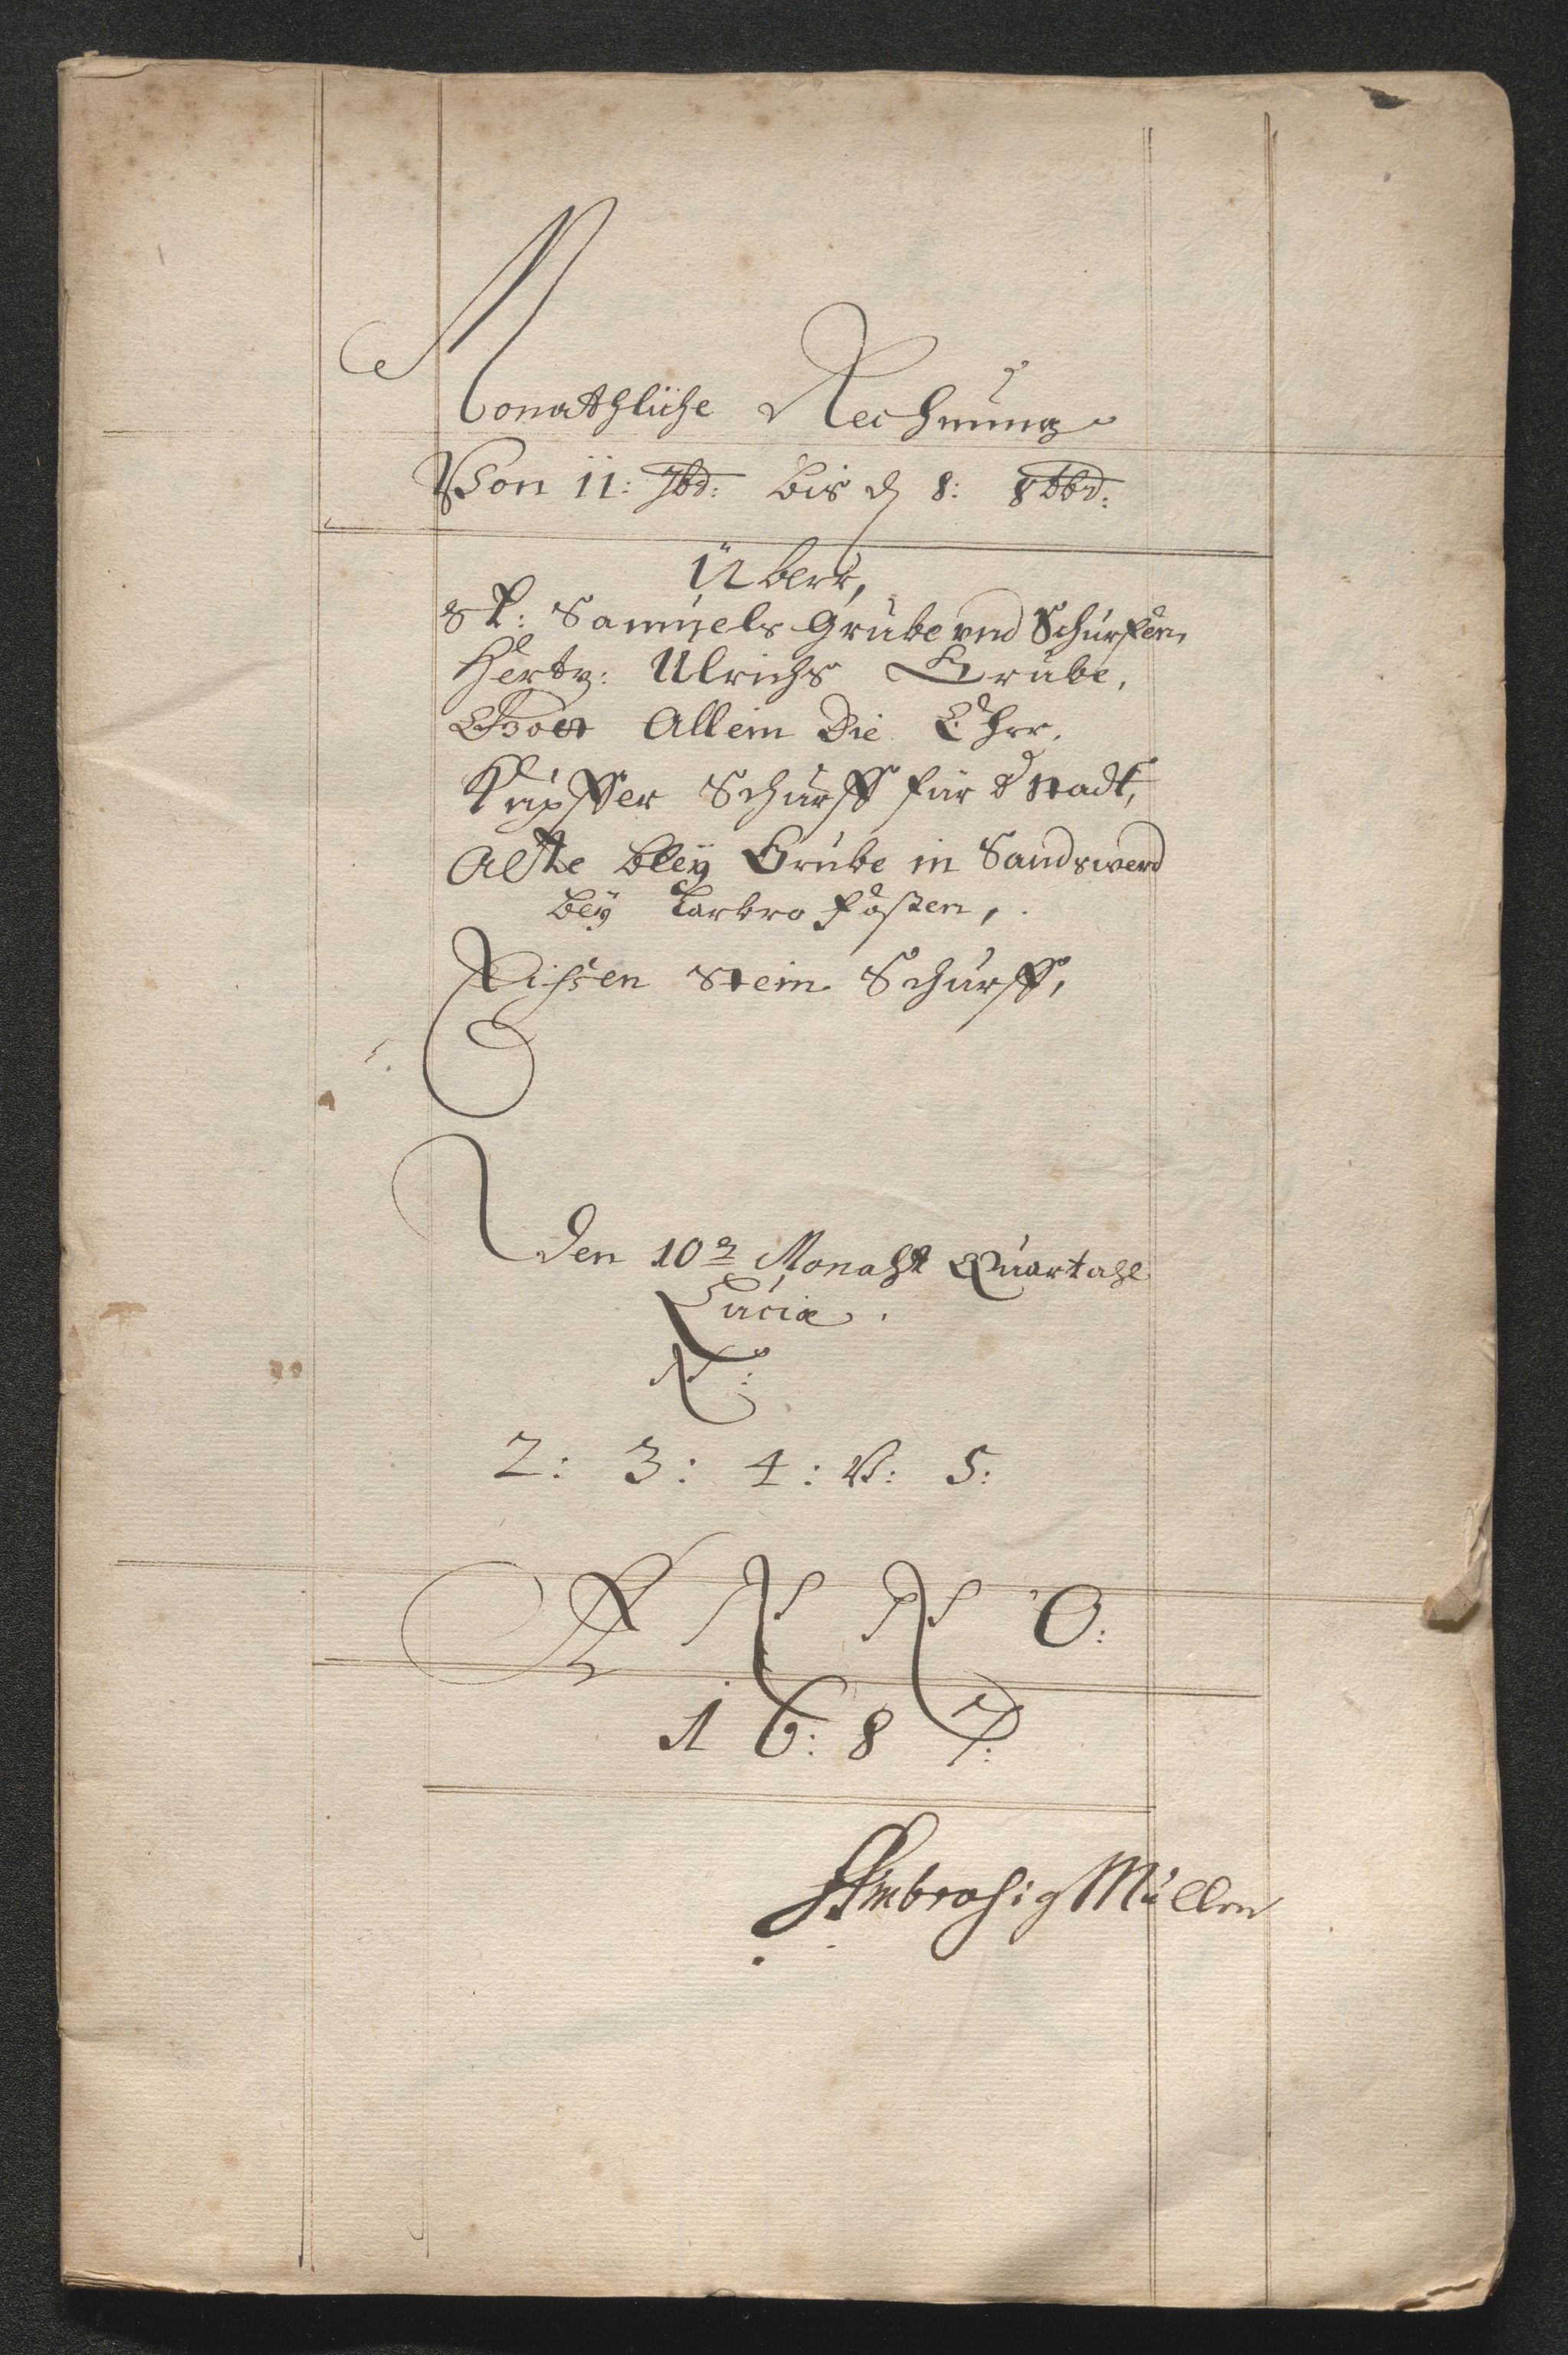 Monathliche Rechnung
Von 11: 7bd: bis d 8: 8tbd:
Über,
St: Samuels Grube vnd Schürffen,
Hertz: Ulrichs Grube,
Gott Allein Die Ehr,
Kupffer Schurff für d Stadt,
Alte bleÿ Grube in Sandswerd
beÿ Larbro fossen,
Eissen Stein Schurff,
Den 10n Monaht Quartahl
Luciæ.
N:
2: 3: 4: V: 5:
ANNO:
16:87:
Ambrosig Müller